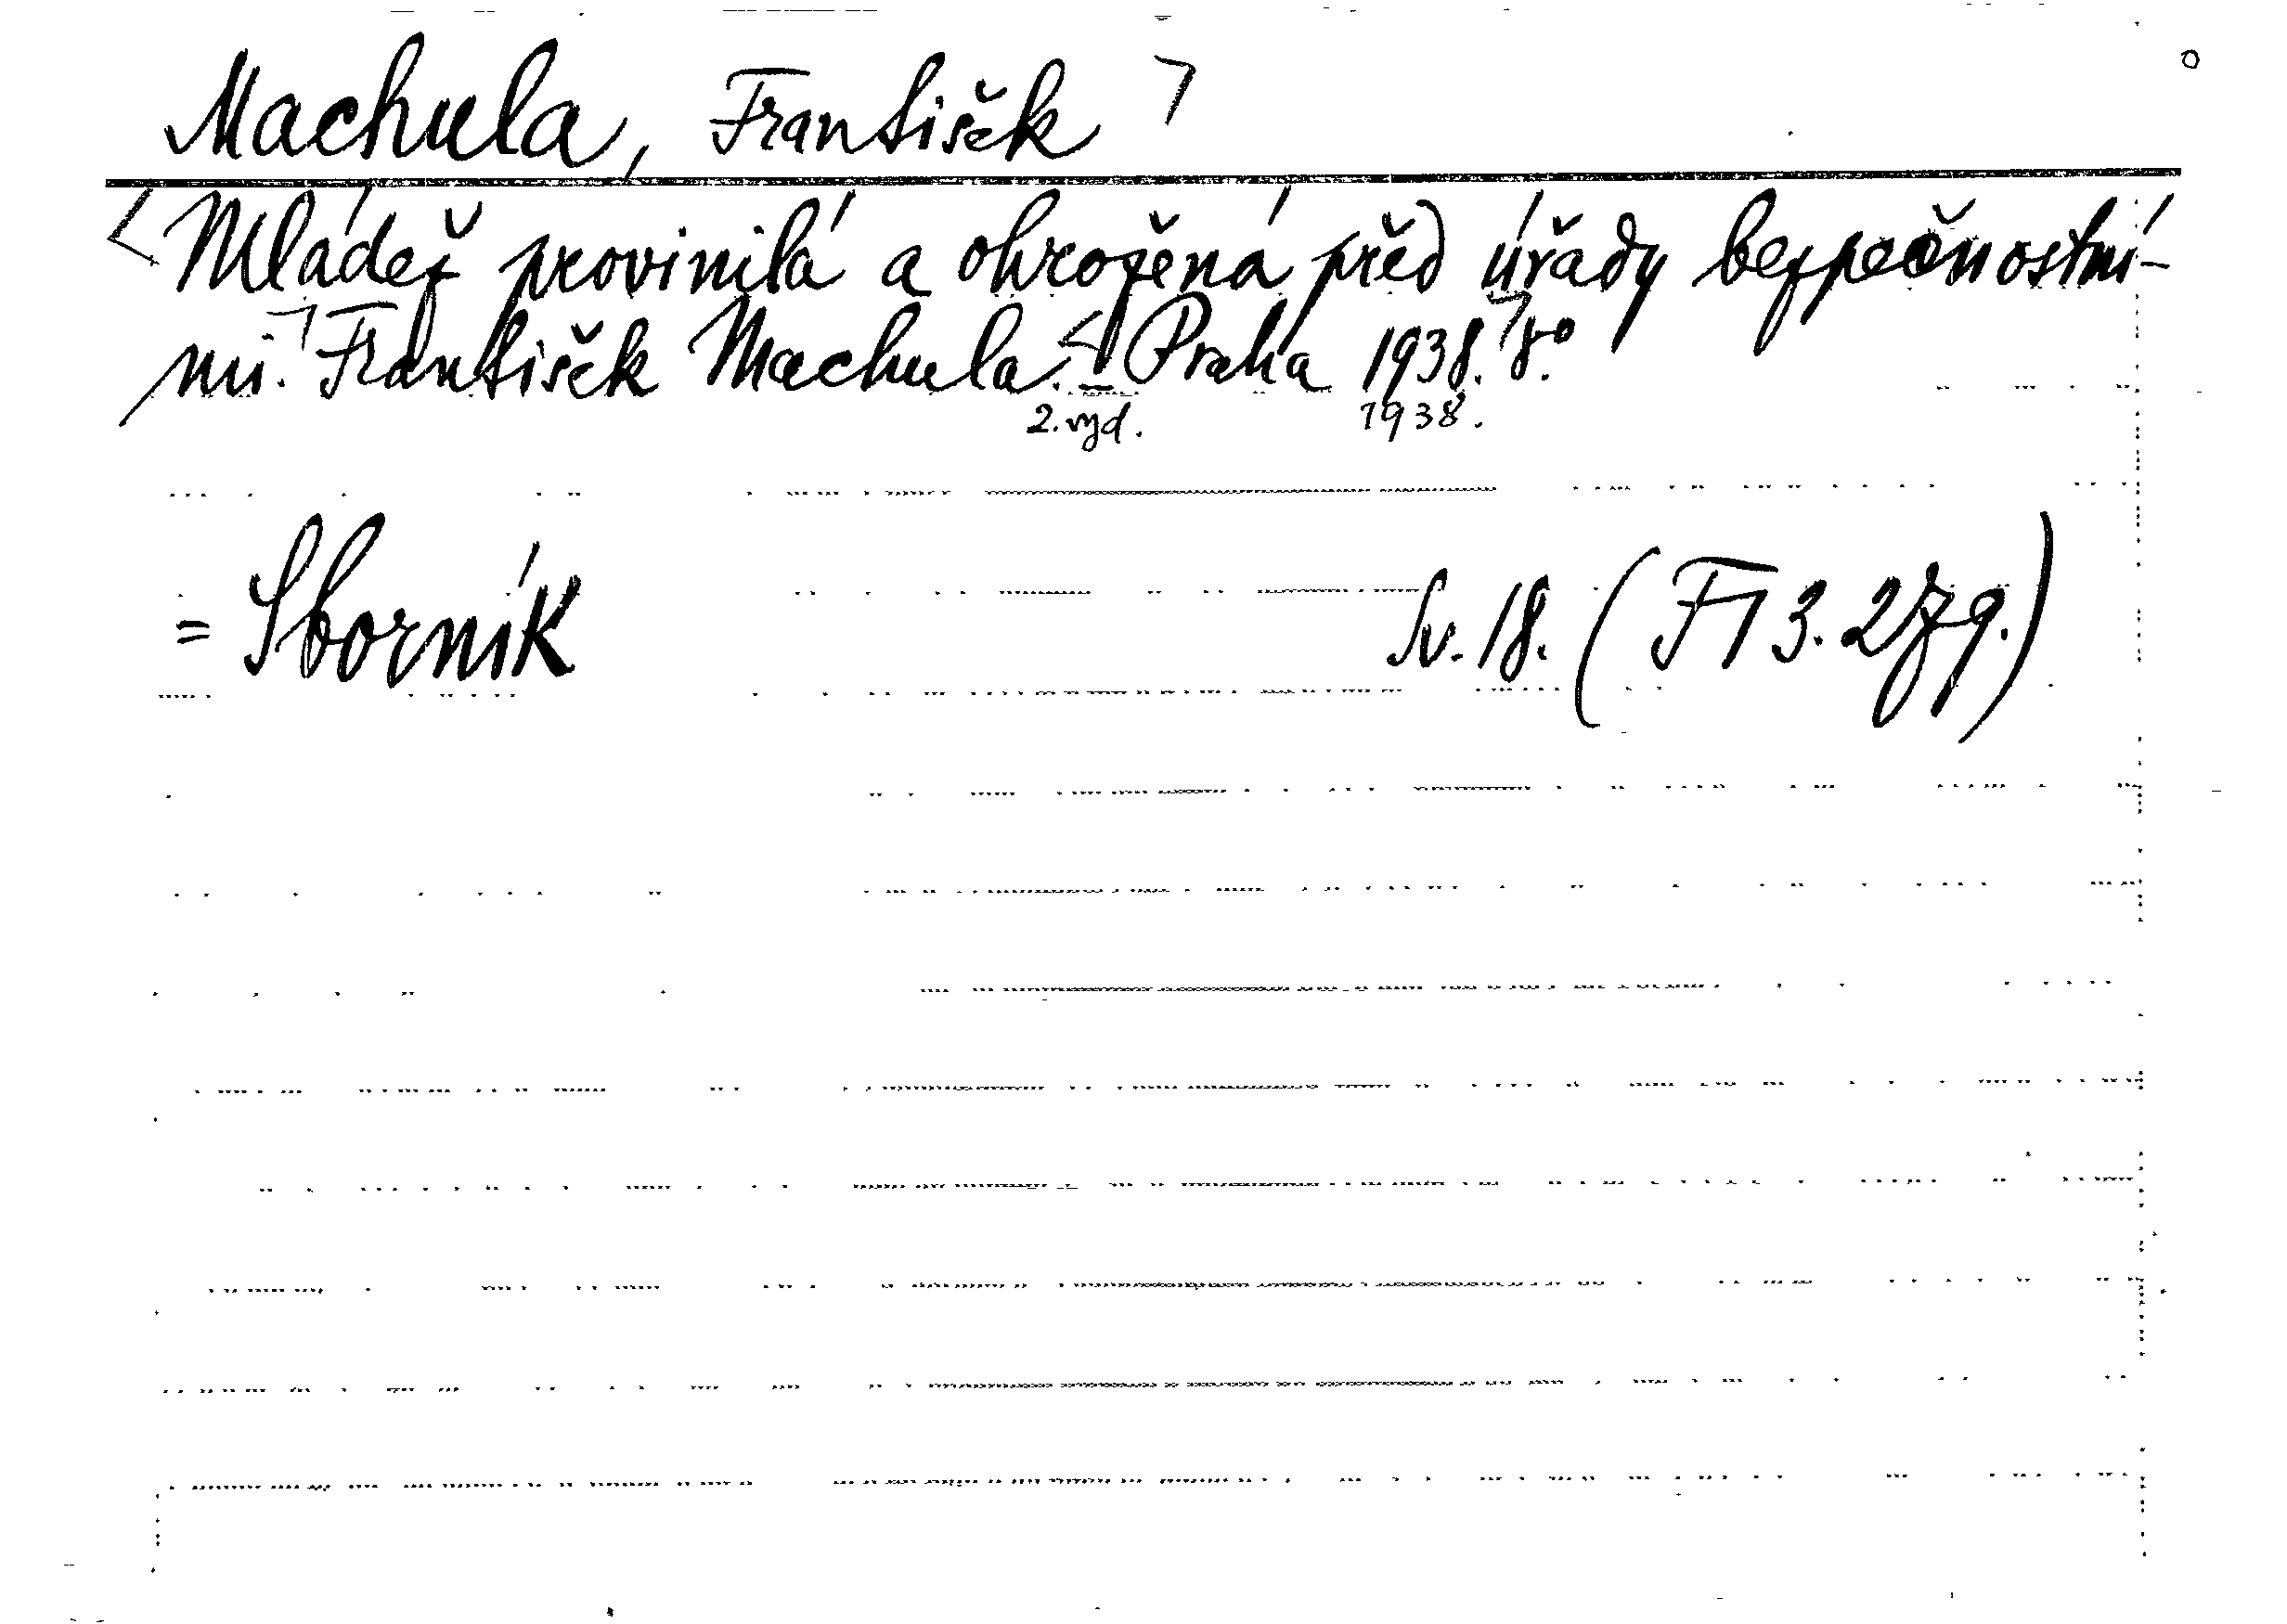 Machula, František
Mládež provinilá a ohrožená před úřady bezpečnostní-
mi. František Machula. - Praha 1938. 8°.
2. vyd. 1938.
= Sborník Sv. 18. (F 13. 279.)